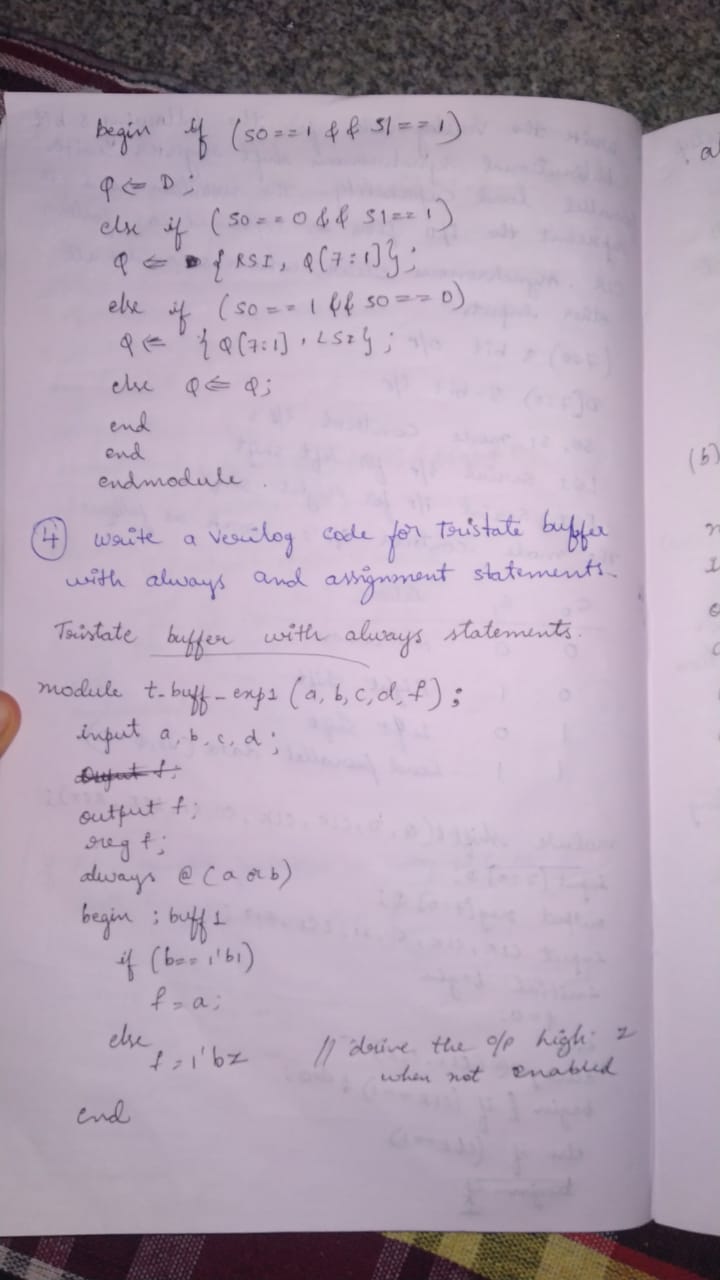 begin if (S0==1 && S1==1)
Q <= D;
else if (S0==0 && S1==1)
Q <= { RSI, Q[7:1]};
else if (S0==1 && S0==0)
Q <= {Q[7:1], LSI};
else Q <= Q;
end
end
endmodule.
4 write a verilog code for Tristate buffer
with always and assignment statements.
Tristate buffer with always statements.
module t-buff-exp1 (a, b, c, d, f);
input a, b, c, d;
output f;
reg f;
always @ (a or b)
begin ; buff 1
if (b== 1'b1)
f = a;
else
f = 1'bz // drive the o/p high z
when not enabled
end
(b)